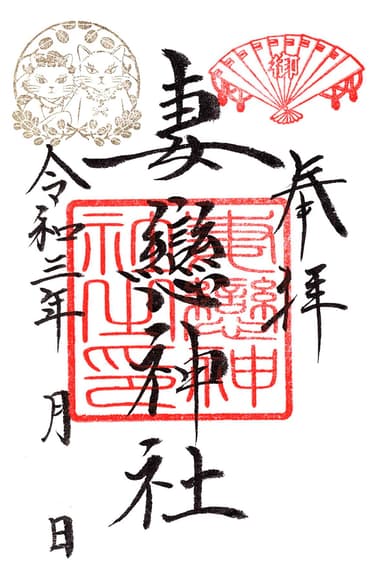 奉拝
妻戀神社
令和三年 月 日
御
妻戀神社之印